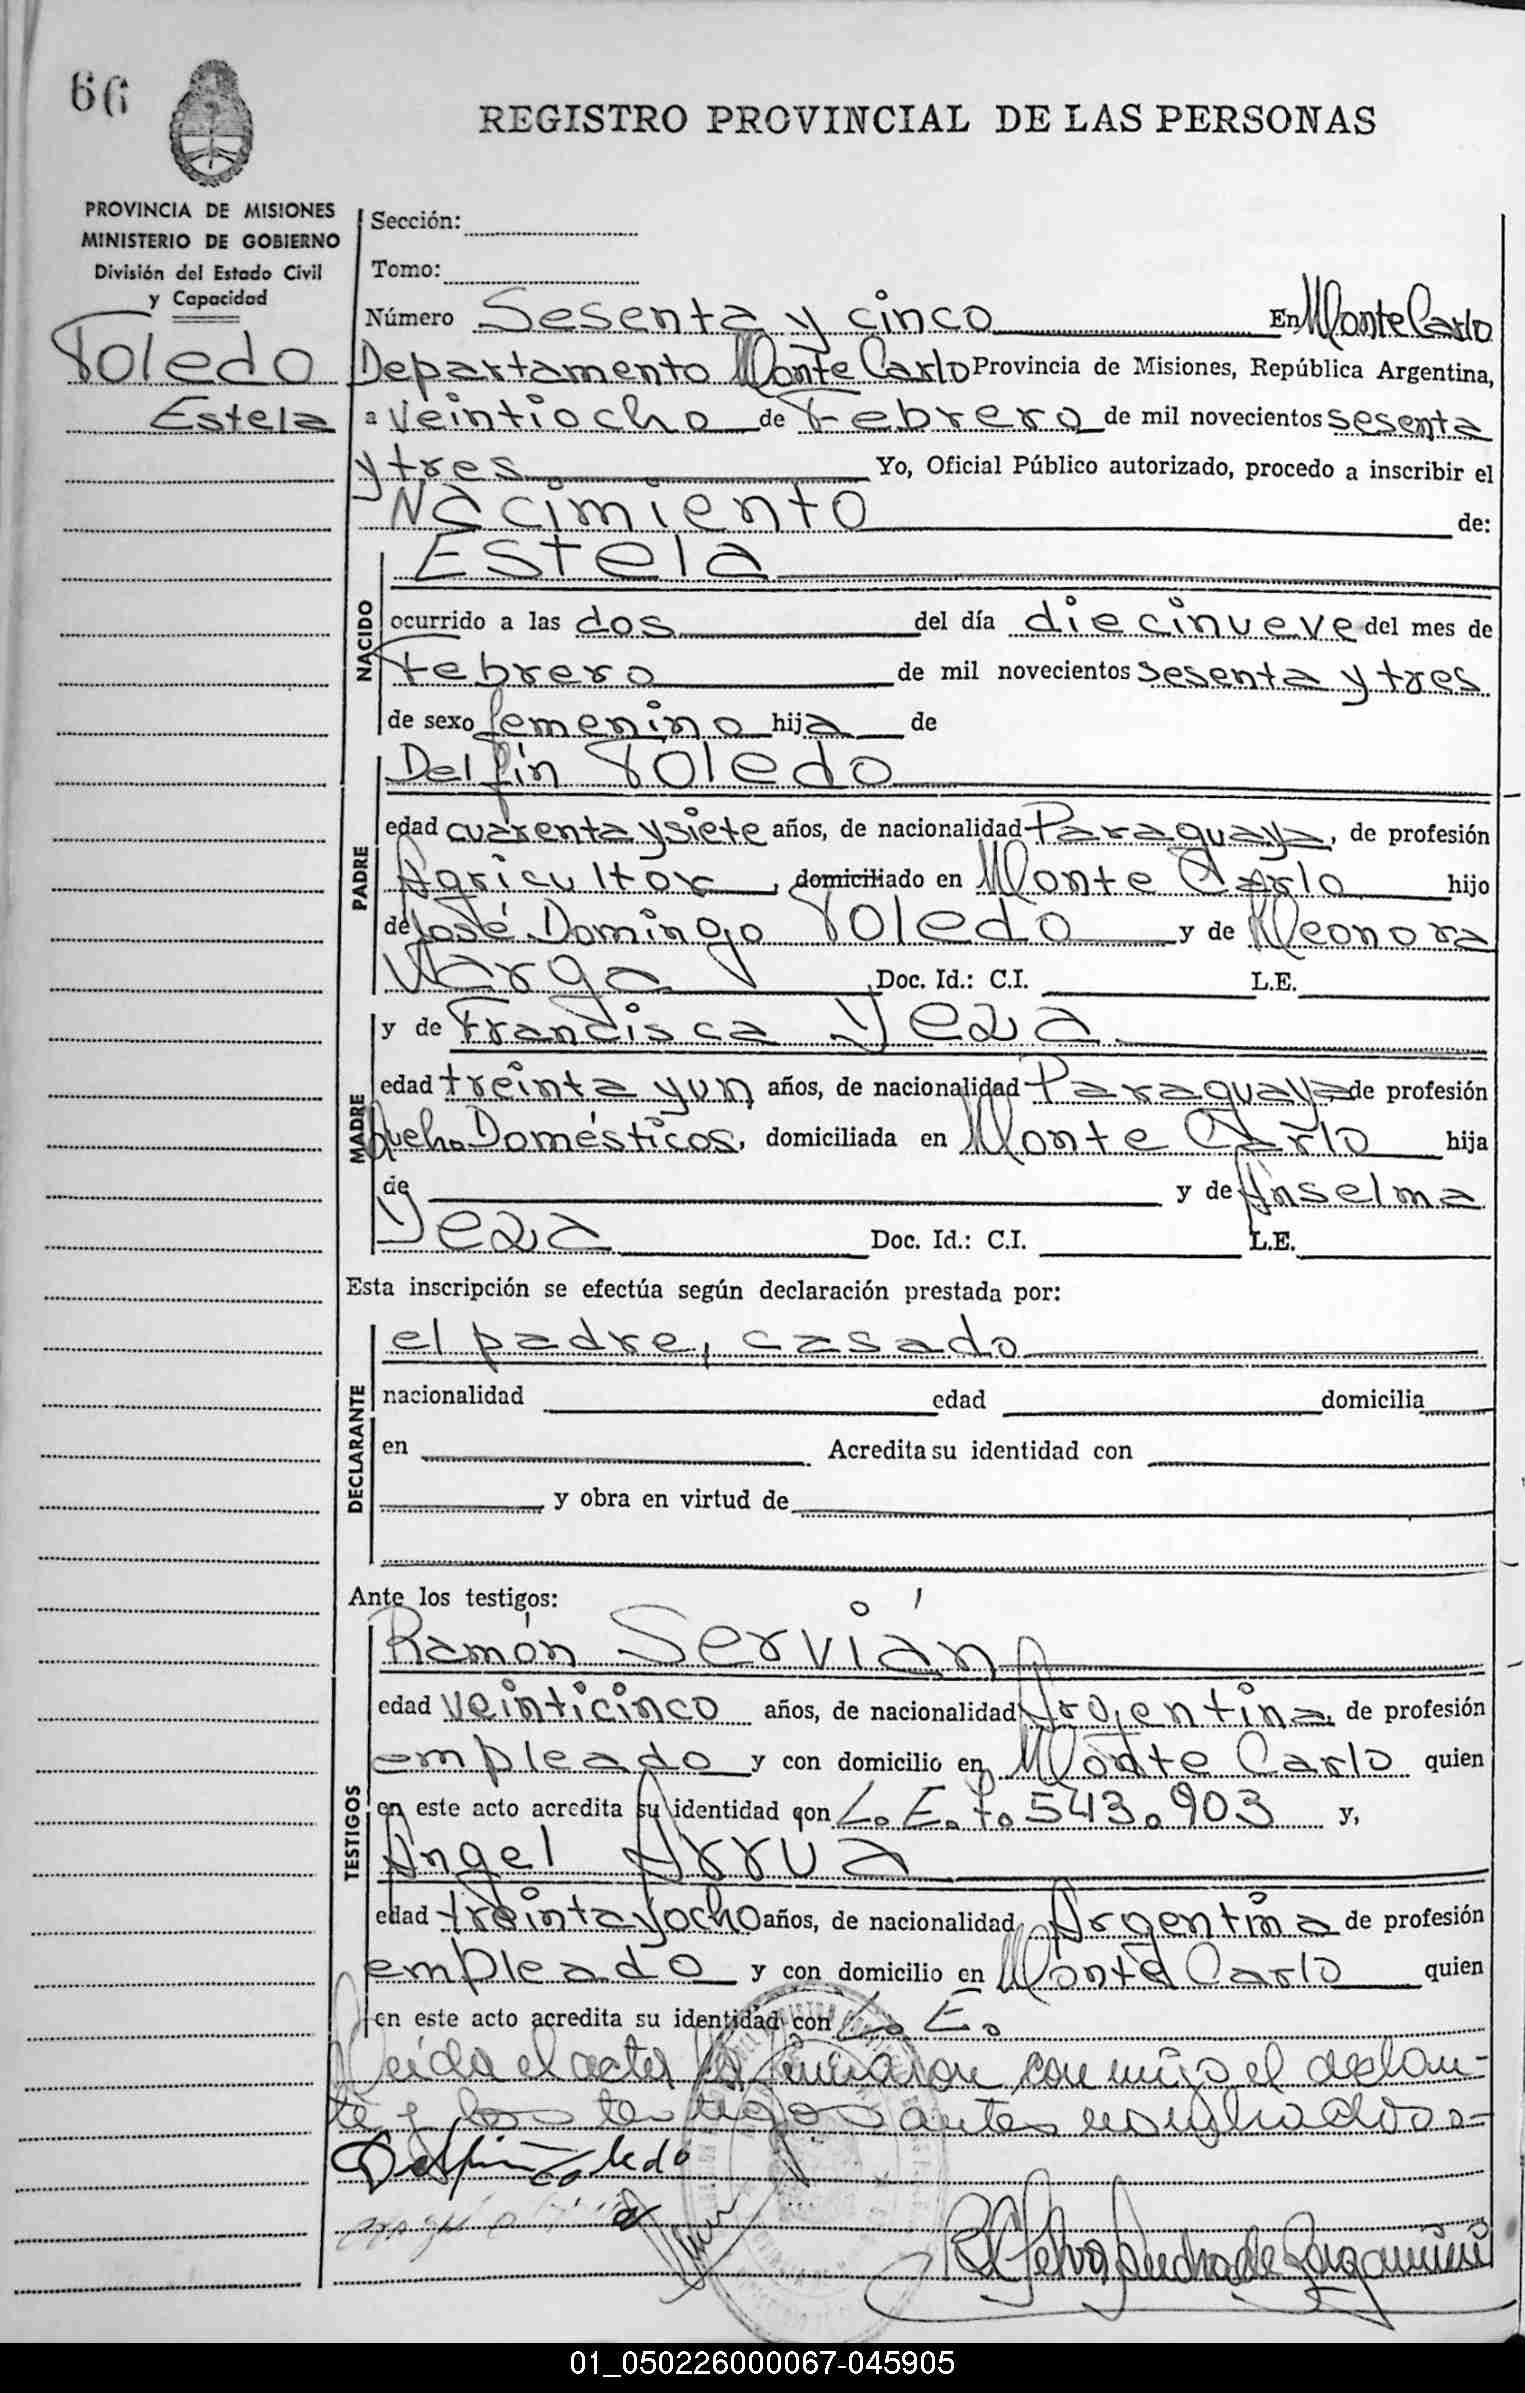 66
REGISTRO PROVINCIAL DE LAS PERSONAS
PROVINCIA DE MISIONES
MINISTERIO DE GOBIERNO
División del Estado Civil
y Capacidad
Toledo
Estela
Sección:
Tomo:
Número Sesenta y cinco En Monte Carlo
Departamento Monte Carlo Provincia de Misiones, República Argentina,
a Veintiocho de Febrero de mil novecientos sesenta
y tres Yo, Oficial Público autorizado, procedo a inscribir el
Nacimiento de:
NACIDO
Estela
ocurrido a las dos del día diecinueve del mes de
Febrero de mil novecientos sesenta y tres
de sexo femenino hija de
PADRE
Delfín Toledo
edad cuarenta y siete años, de nacionalidad Paraguaya, de profesión
Agricultor, domiciliado en Monte Carlo hijo
de José Domingo Toledo y de Kleonora
Varga Doc. Id.: C.I. L.E.
MADRE
y de Francisca Yeza
edad treinta y un años, de nacionalidad Paraguaya de profesión
Queh. Domésticos, domiciliada en Monte Carlo hija
de y de Anselma
Yeza Doc. Id.: C.I. L.E.
Esta inscripción se efectúa según declaración prestada por:
DECLARANTE
el padre, casado
nacionalidad edad domicilia
en Acredita su identidad con
y obra en virtud de
Ante los testigos:
TESTIGOS
Ramón Servián
edad veinticinco años, de nacionalidad Argentina, de profesión
empleado y con domicilio en Monte Carlo quien
en este acto acredita su identidad con L. E. 7.543.903 y,
Angel Arrua
edad treinta y ocho años, de nacionalidad Argentina de profesión
empleado y con domicilio en Monte Carlo quien
en este acto acredita su identidad con L. E.
Leída el acta la firmaron con migo el declaran-
te y los testigos antes nombrados=
Delfin Toledo
01_050226000067-045905